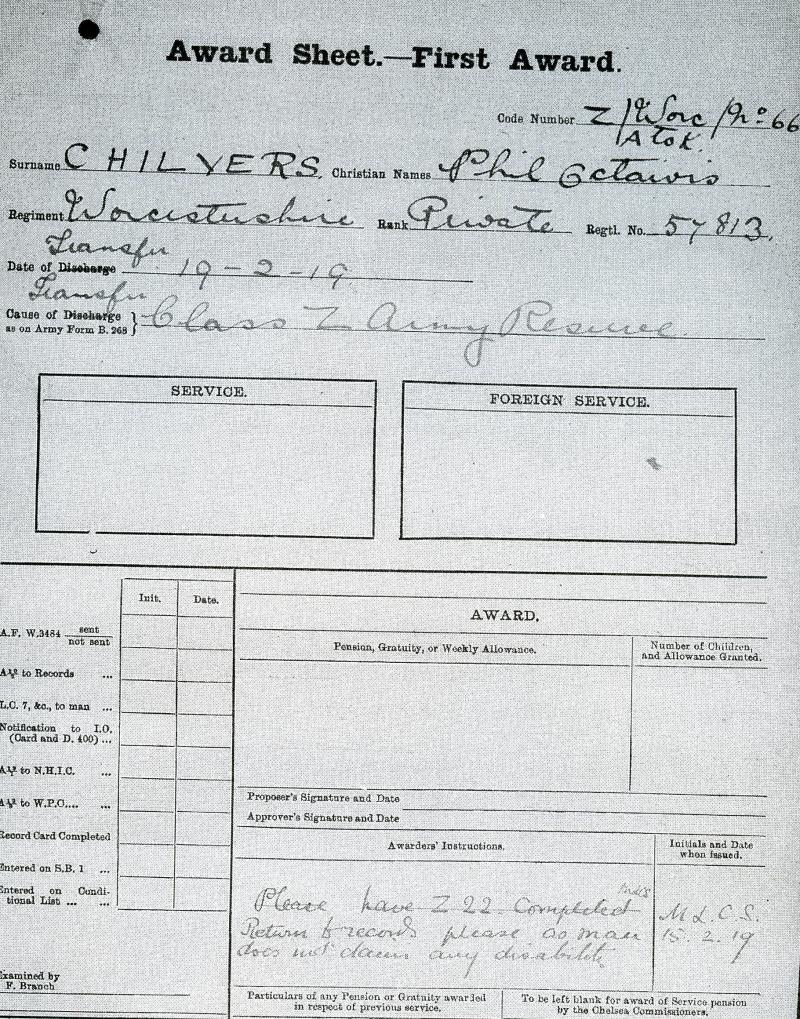 Award Sheet.—First Award.
Code Number Z/Worc/No 66
A to K.
Surname CHILVERS. Christian Names Phil Octavis
Regiment Worcestershire Rank Private Regtl. No. 57813.
Transfer
Date of Discharge 19-2-19
Transfer
Cause of Discharge } Class Z Army Reserve.
as on Army Form B. 268
SERVICE. FOREIGN SERVICE.
Init. Date.
AWARD.
A.F. W.3484 sent
not sent
Pension, Gratuity, or Weekly Allowance. Number of Children,
and Allowance Granted.
to Records ...
L.C. 7, &c., to man ...
Notification to I.O.
(Card and D. 400) ...
to N.H.I.C. ...
to W.P.O.... ...
Proposer's Signature and Date
Approver's Signature and Date
Record Card Completed
Awarders' Instructions. Initials and Date
when issued.
Entered on S.B. 1 ...
Entered on Condi-
tional List ... ...
Please have Z 22 Completed
Return to records please as man
does not claim any disability.
M.L.C.S.
15.2.19
Examined by
F. Branch
Particulars of any Pension or Gratuity awarded
in respect of previous service.
To be left blank for award of Service pension
by the Chelsea Commissioners.